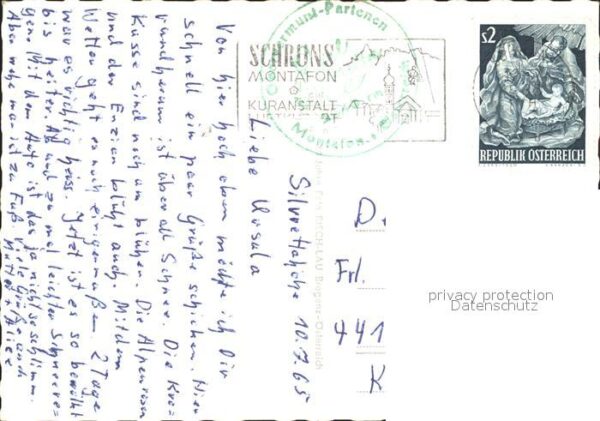 Silvrettahöhe 10.7.65
Liebe Ursula
Von hier hoch oben möchte ich Dir
schnell ein paar Grüße schicken. Hier
rundherum ist überall Schnee. Die Kro=
kusse sind noch am blühen. Die Alpenrosen
und der Enzian blüht auch. Mit dem
Wetter geht es noch einigermaßen. 2 Tage
war es richtig heiss. Jetzt ist es so bewölkt
bis heiter. Ab und zu mal leichter Schneere=
gen. Mit dem Auto ist das ja nicht so schlimm.
Aber wehe man ist zu Fuß. Viele Grüße auch
D.
Frl.
441
K
SCHRUNS
MONTAFON
KURANSTALT
Partenen
Montafon
S2
REPUBLIK ÖSTERREICH
privacy protection
Datenschutz